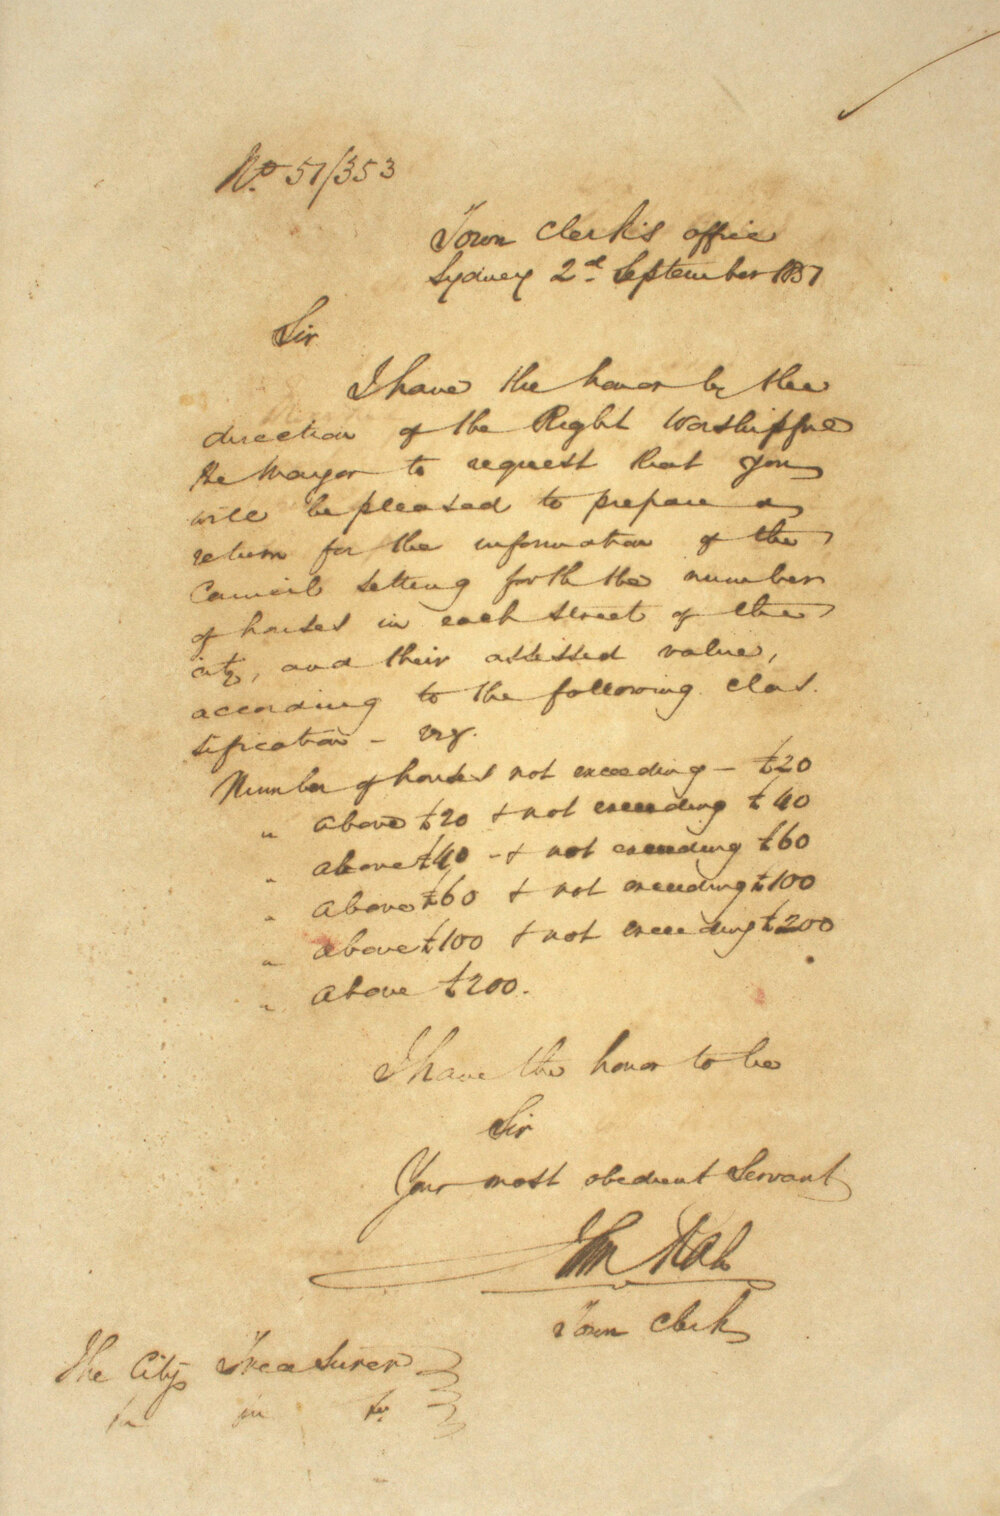 No. 57/353
Town Clerk's office
Sydney 2d September 1857
Sir
I have the honor by the
direction of the Right Worshipful
the Mayor to request that you
will be pleased to prepare a
return for the information of the
Council setting forth the number
of houses in each street of the
city, and their assessed value,
according to the following clas.
sification - viz.
Number of houses not exceeding - £20
" above £20 & not exceeding £40
" above £40 - & not exceeding £60
" above £60 & not exceeding £100
" above £100 & not exceeding £200
" above £200.
I have the honor to be
Sir
Your most obedient Servant
John
Town Clerk
The City Treasurer